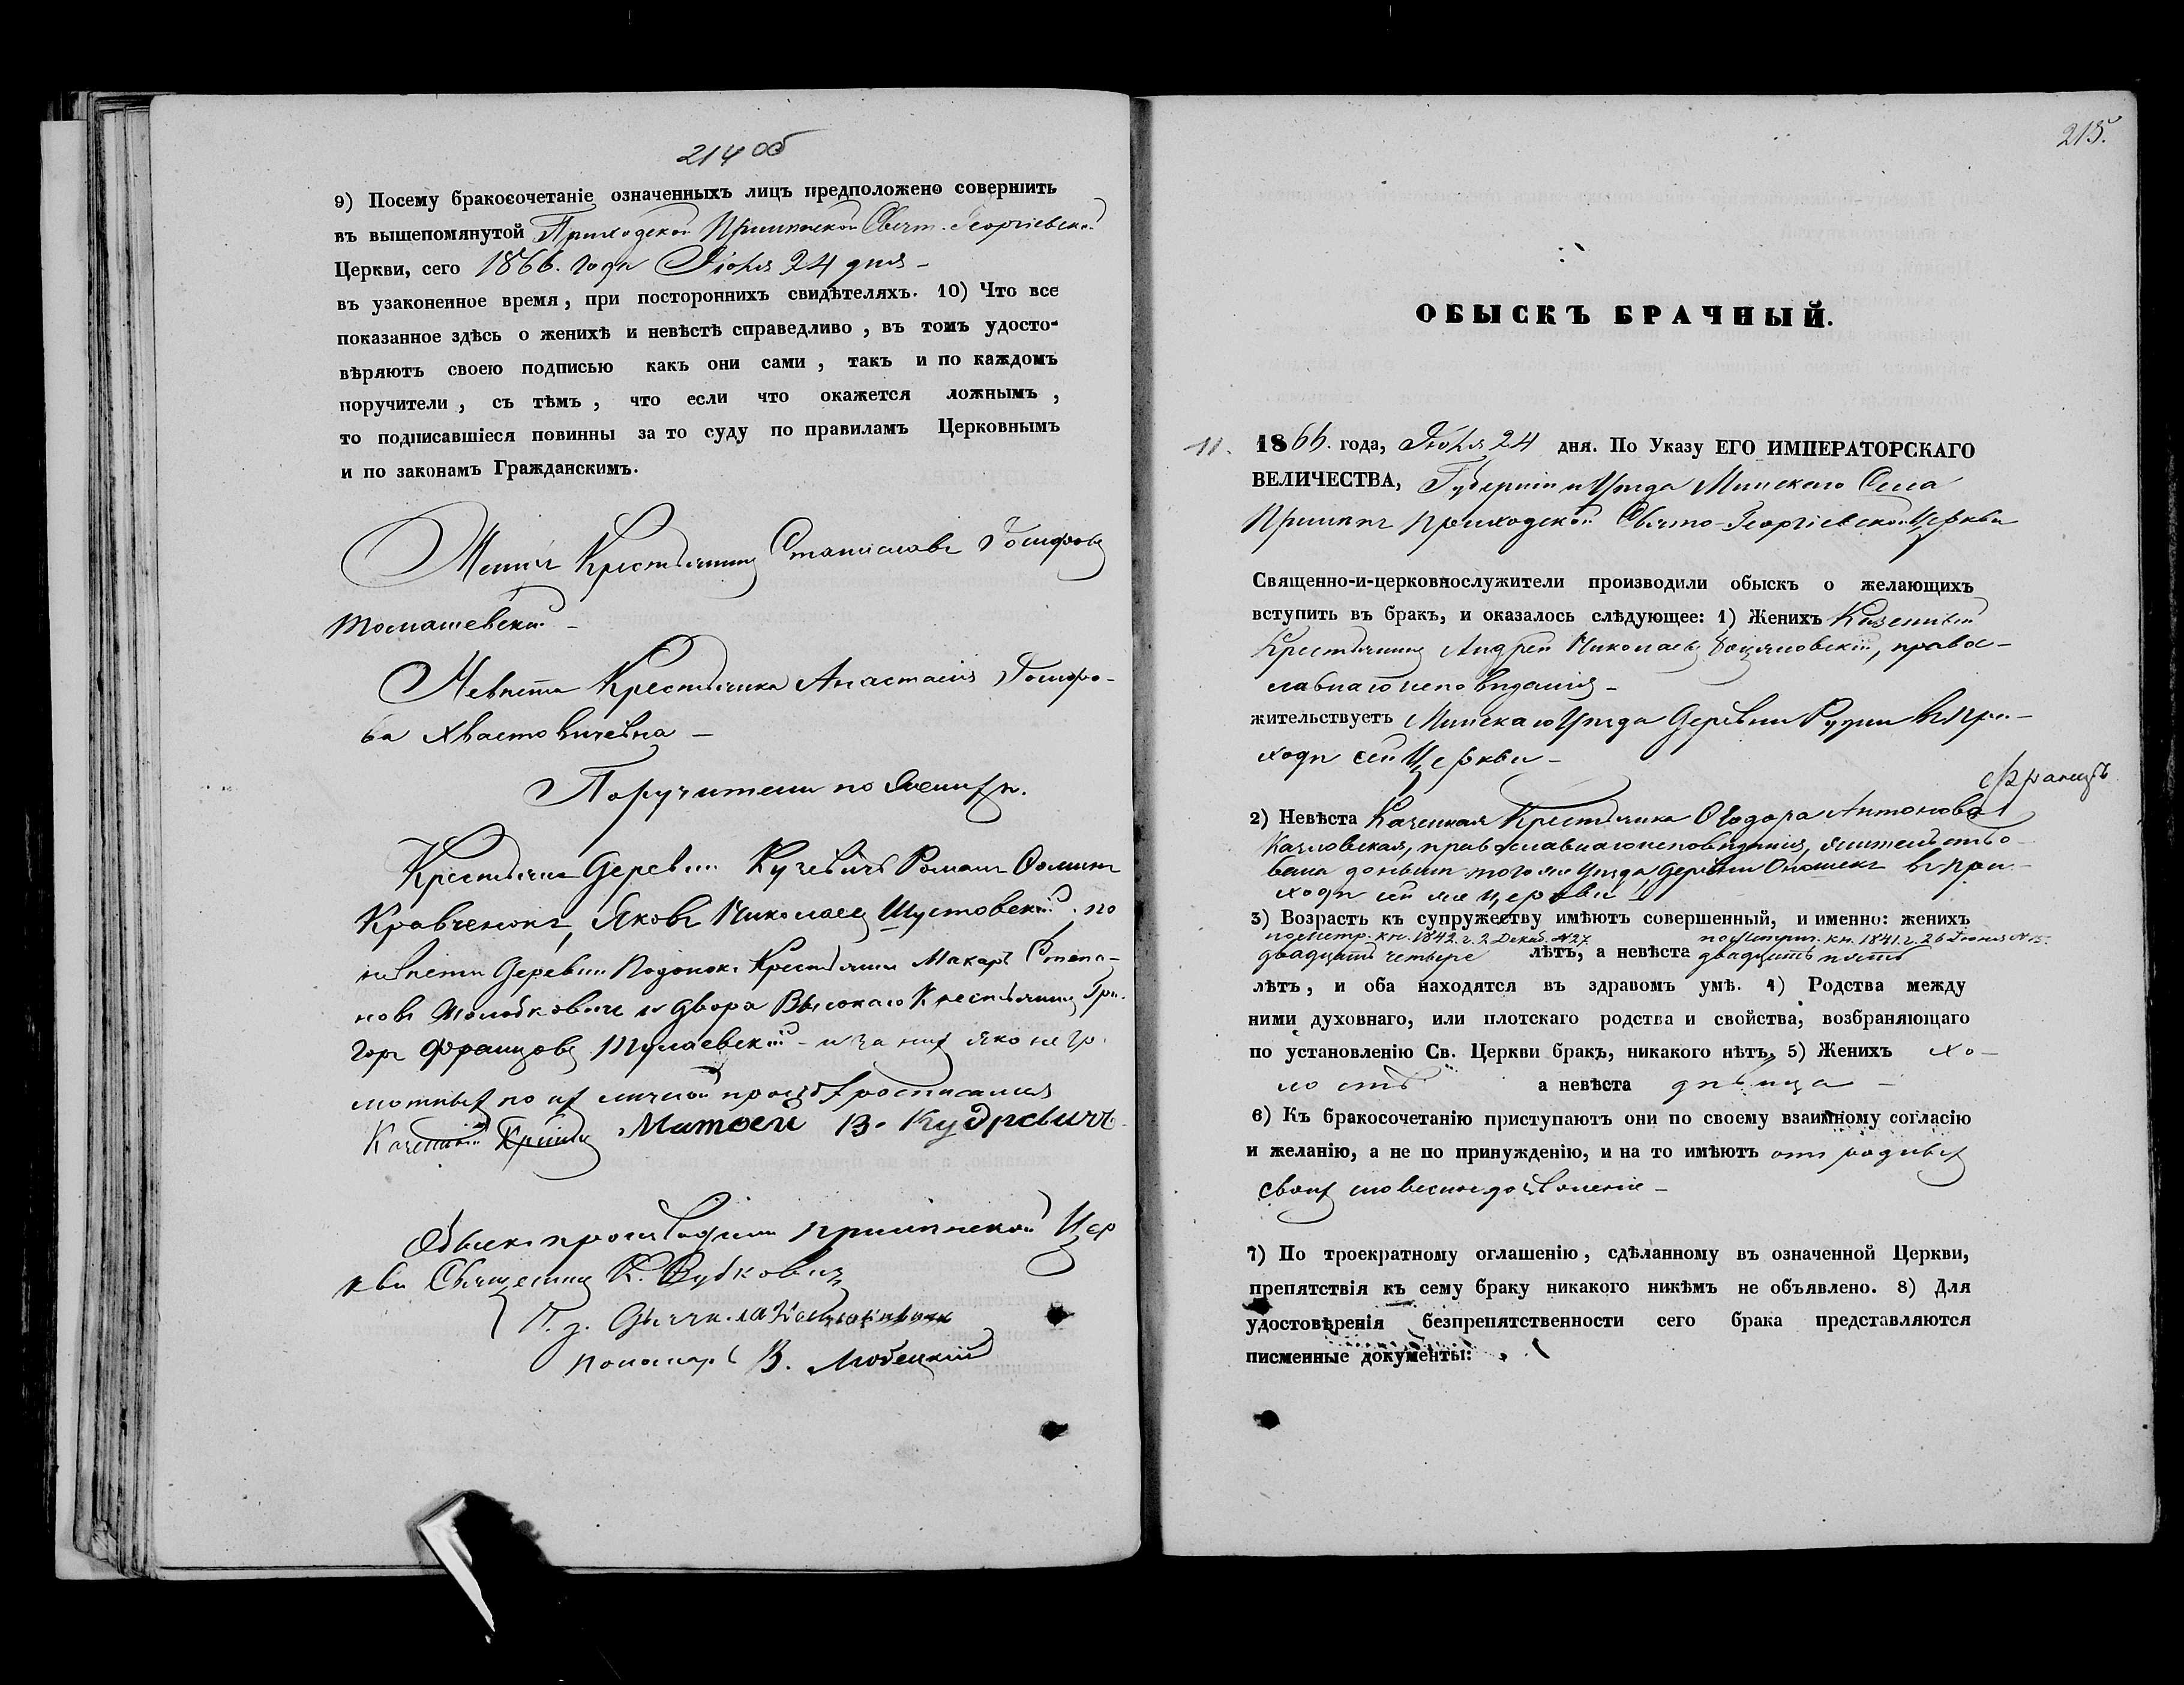 214 об
9) Посему бракосочетаніе означенныхъ лицъ предположено совершить
въ вышепомянутой Приходской Прилѣпской Свят. Георгіевской
Церкви, сего 1866. года Іюля 24 дня –
въ узаконенное время, при постороннихъ свидѣтеляхъ. 10) Что все
показанное здѣсь о женихѣ и невѣстѣ справедливо, въ томъ удосто-
вѣряютъ своею подписью какъ они сами, такъ и по каждомъ
поручители, съ тѣмъ, что если что окажется ложнымъ,
то подписавшіеся повинны за то суду по правиламъ Церковнымъ
и по законамъ Гражданскимъ.
Женихъ Крестьянинъ Станиславъ Іосифовъ
Томашевскій –
Невѣста Крестьянка Анастасія Іосифо-
ва Хвастовичевна –
Поручители по женихѣ.
Крестьяне Деревни Романъ Фоминъ
Кравченокъ, Яковъ Николаевъ Шустовскій; по
невѣсти Деревни Подонокъ Крестьянинъ Макаръ Степа-
новъ и Двора Высокаго Крестьянинъ Гри-
горъ Францовъ – и за нихъ яко негра-
мотныхъ по ихъ личной прозьбѣ росписался
Казенный Крестьян. Матвей В. Кудревичъ
Обыскъ производили Прилѣпской Цер
кви Священникъ К.
Пономаръ В. Любецкій
215.
ОБЫСКЪ БРАЧНЫЙ.
11. 1866. года, Іюля 24 дня. По Указу ЕГО ИМПЕРАТОРСКАГО
ВЕЛИЧЕСТВА, Губерніи и Уѣзда Минскаго Села
Прилѣпъ приходской Свято-Георгіевской Церкви
Священно-и-церковнослужители производили обыскъ о желающихъ
вступить въ бракъ, и оказалось слѣдующее: 1) Женихъ Казенный
Крестьянинъ Андрей Николаевъ правос-
лавнаго исповѣданія –
жительствуетъ Минскаго Уѣзда Деревни Рудни въ при-
ходѣ сей Церкви –
Францъ
2) Невѣста Казенная Крестьянка Ѳеодора Антонова
Казловская, православнаго исповѣданія, жительство-
вала донынѣ того же Уѣзда, Деревни въ при-
ходѣ сей же церкви
3) Возрастъ къ супружеству имѣютъ совершенный, и именно: женихъ
по Метр. кн. 1842. г. 2 Декаб. №27. по Метрич. кн. 1841. г. 26 Іюня № 15.
двадцать четыре лѣтъ, а невѣста двадцать пять
лѣтъ, и оба находятся въ здравомъ умѣ. 4) Родства между
ними духовнаго, или плотскаго родства и свойства, возбраняющаго
по установленію Св. Церкви бракъ, никакого нѣтъ. 5) Женихъ хо-
лостъ а невѣста дѣвица –
6) Къ бракосочетанію приступаютъ они по своему взаимному согласію
и желанію, а не по принужденію, и на то имѣютъ отъ родныхъ
своихъ словесное дозволеніе –
7) По троекратному оглашенію, сдѣланному въ означенной Церкви,
препятствія къ сему браку никакого никѣмъ не объявлено. 8) Для
удостовѣренія безпрепятственности сего брака представляются
писменные документы: